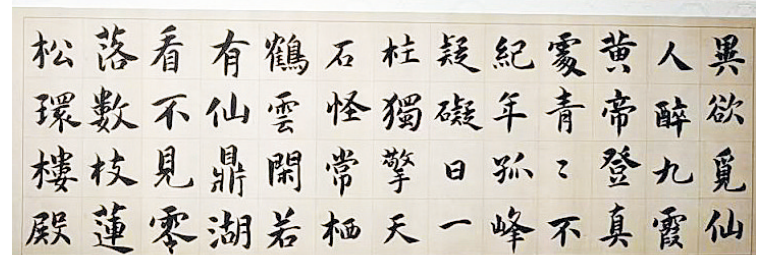 異欲覓仙
人醉九霞
黄帝登真
處青〻不
紀年孤峰
疑礙日一
柱獨擎天
石怪常栖
鶴雲閑若
有仙鼎湖
看不見零
落數枝蓮
松環樓殿